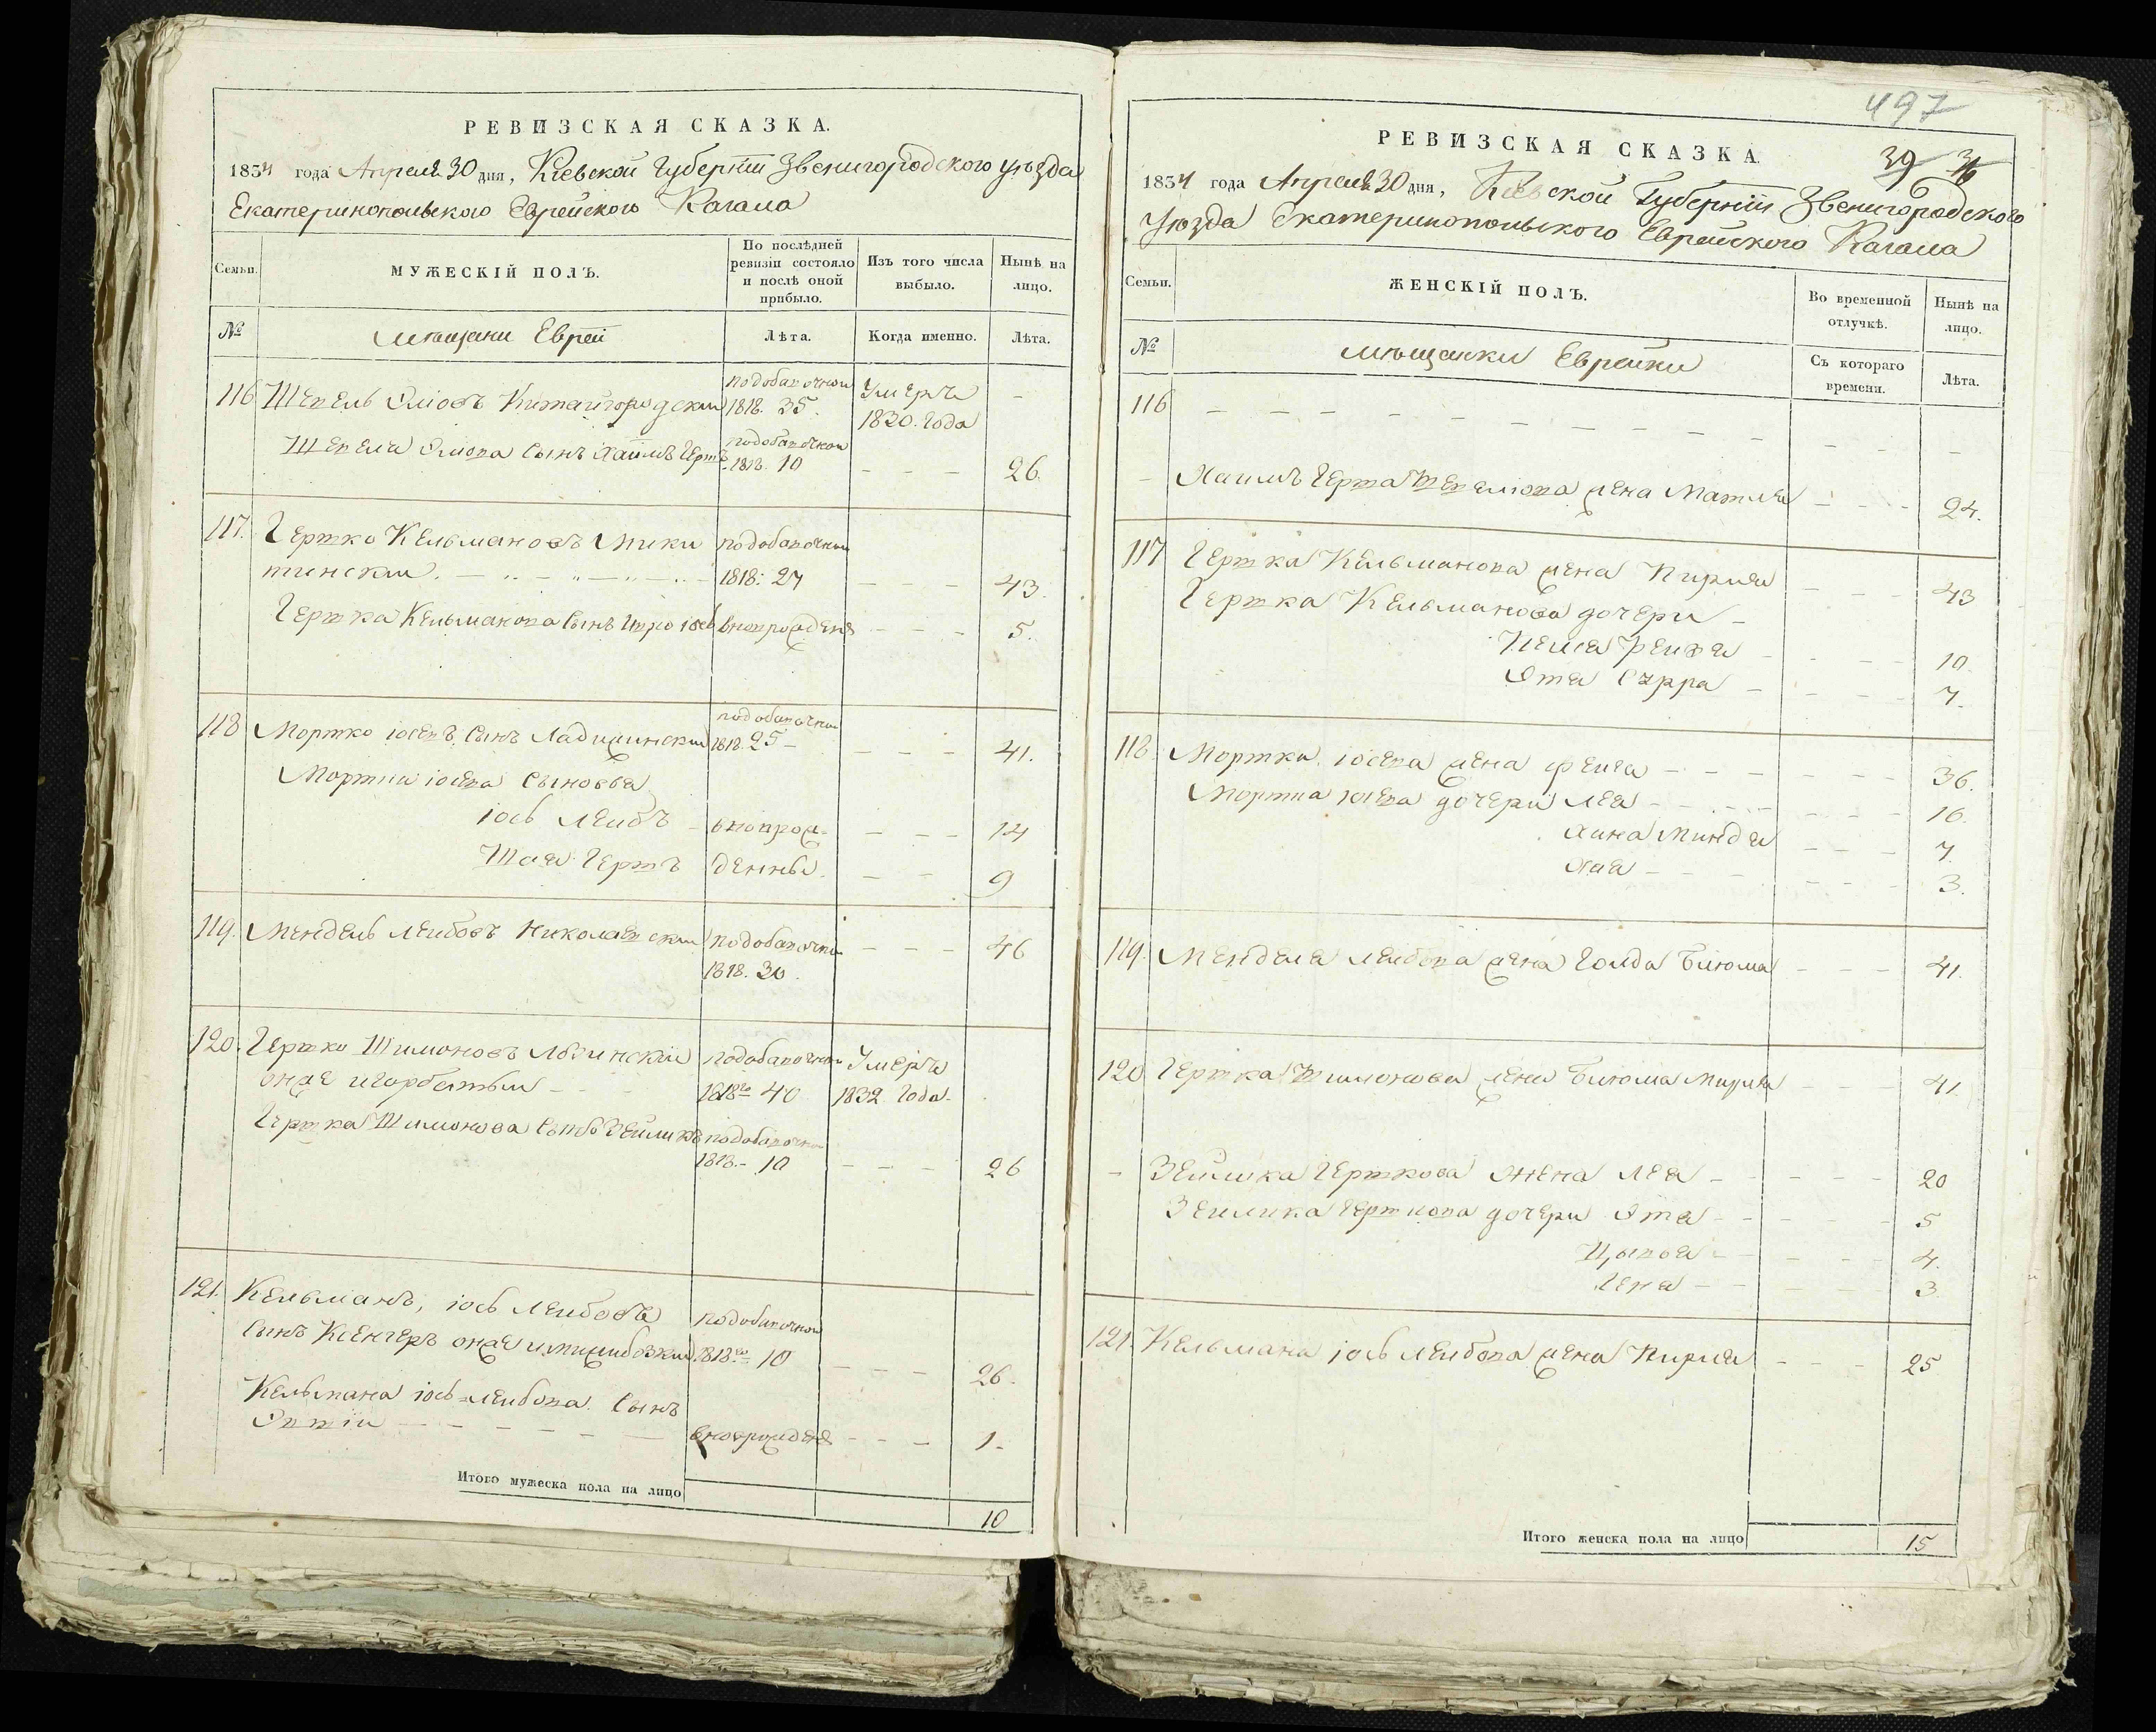 РЕВИЗСКАЯ СКАЗКА.
1834 года Апреля 30 дня, Кіевской Губерніи Звенигородского уѣзда
Екатеринопольского Еврейского Кагала
Семьи.
МУЖЕСКІЙ ПОЛЪ.
По послѣдней ревизіи состояло и послѣ оной прибыло.
Изъ того числа выбыло.
Нынѣ на лицо.
№
мещани Евреи
Лѣта.
Когда именно.
Лѣта.
116 Шепель Китайгородскии подобавочнои 1818. 35. Умеръ 1830. Года —
Шепеля сынъ Хаимъ Герт подобавочнои 1818. 10 — — — 26.
117. Гертко Кельмановъ подобавочнои
тинскии. 1818: 27 — — — 43.
Гертка Кельманова Сынъ Іось вновьрожденъ — — — 5.
118 Мортко іосевъ Сынъ Ладижинскии подобавочнои 1818. 25 — — — — 41.
Мортка іосева Сыновья
іось Леибъ вноврож= — — — 14
Шая Гертъ денны. — — 9
119. Мендель Леибовъ Николаевскии подобавочнои 1818. 30. — — — 46
120. Гертко Шимоновъ подобавочнои Умеръ
онже игорбатыи 1818го 40 1832 Года.
Гертка Шимонова Сынъ Зейликъ подобавочнои
1818.- 10 — — — 26
121. Кельманъ, іось Леибовъ подобавочнои
Сынъ онже 1818го 10 — — — 26.
Кельмана іось=Леибова Сынъ
вноврожденъ — — — 1.
Итого мужеска пола на лицо
10
497
39
РЕВИЗСКАЯ СКАЗКА.
1834 года Апреля 30 дня, Кіевской Губерніи Звенигородского
Уюзда Екатеринопольского Еврейского Кагала
Семьи.
ЖЕНСКІЙ ПОЛЪ.
Во временной отлучкѣ.
Нынѣ на лицо.
№
мѣщанки Еврейки
Съ котораго времени.
Лѣта.
116 — — — — — — — — —
— Хаимъ Герта Шепелюва жена — — — 24.
117 Гертка Кельманова жена Пирля — — — 43
Гертка Кельманова дочери —
Реиза — — — — 10.
Эта Сурра — — — — 7.
118. Мортка іосева жена феига — — — 36.
Мортка іосева дочери Лея — — — 16.
Хина Миндля — — — 7.
Хая — — — 3.
119. Менделя Леибова жена Голда Блюма — — — 41.
120 Гертка Шимонова жена Блюма Мирля — — — 41.
— Зейлика Герткова жена Лея — — — 20
Зеилика Герткова дочери Эта — — — 5
Цыпья — — — 4.
Гена — — — 3
121. Кельмана іось Леибова жена Пирля — — — 25
Итого женска пола на лицо
15